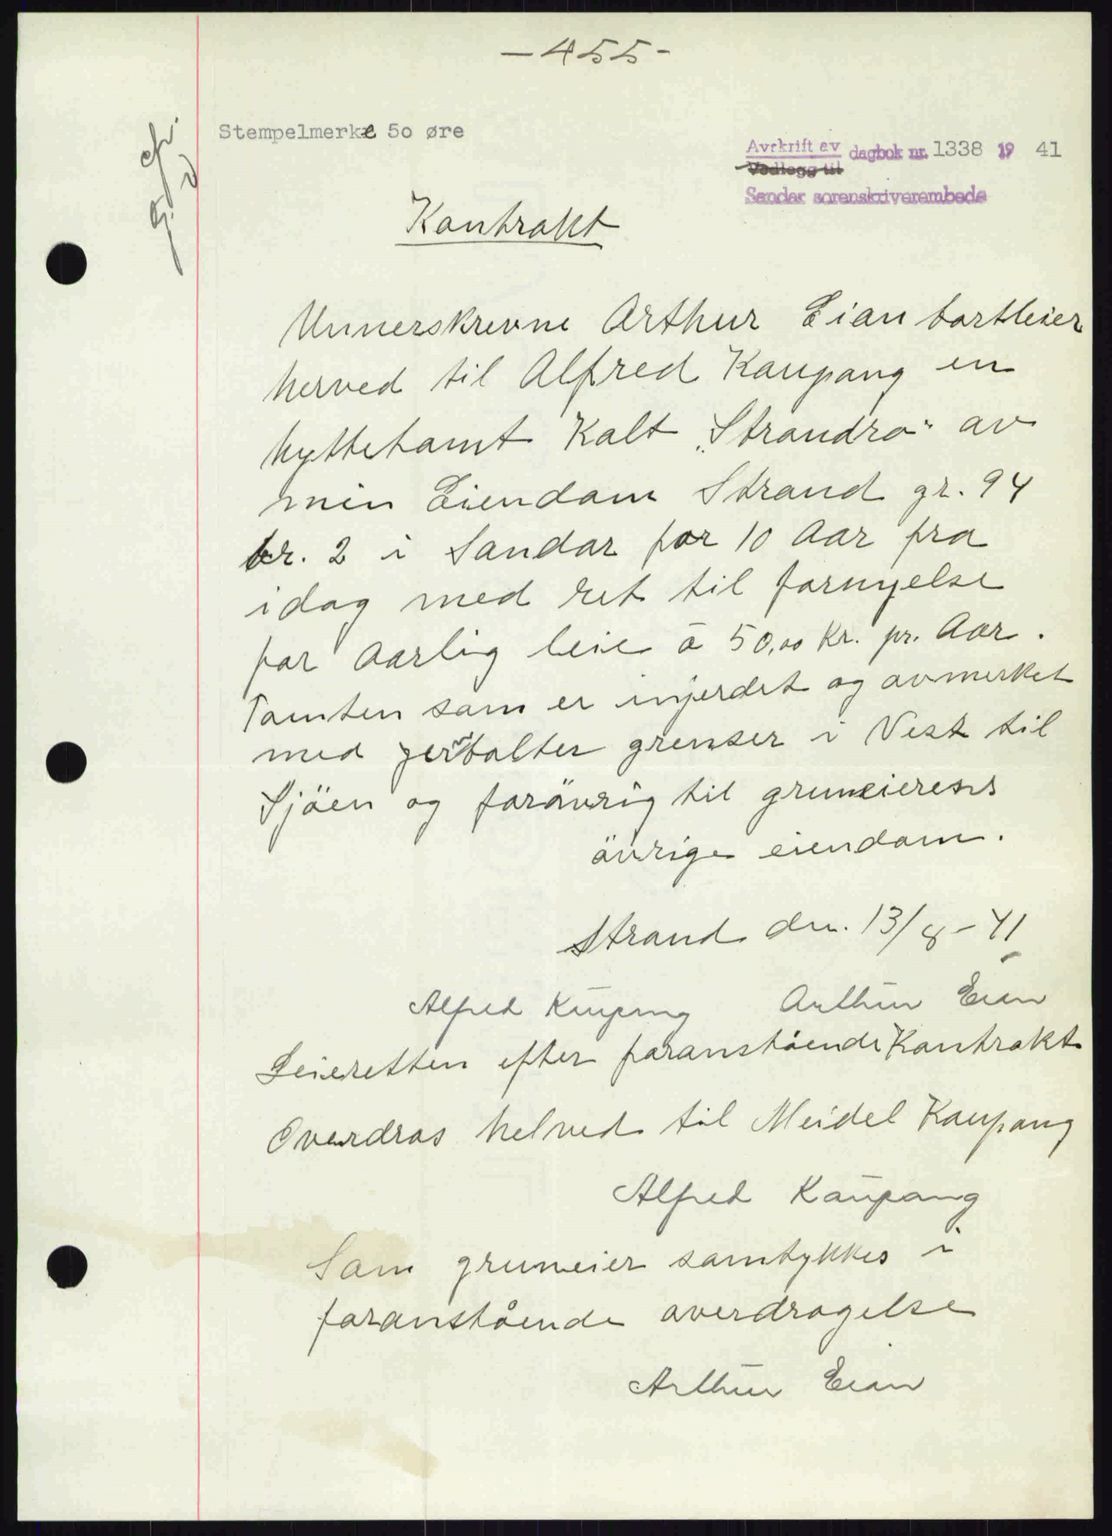 — 455 -
Stempelmerke 50 øre
Avskrift av dagbok nr. 1338 19 41
Vedlegg til
Sandar sorenskriverembede
Kontrakt
Unnerskrevne Arthur Eian bortleier
herved til Alfred Kaupang en
hyttetomt Kalt "Strandro" av
min Eiendom Strand gr. 94
br. 2 i Sandar for 10 Aar fra
idag med ret til fornyelse
for aarlig leie á 50,00 Kr. pr. Aar.
Tomten som er injerdet og avmerket
med grenser i Vest til
Sjöen og forövrig til gruneierens
övrige eiendom.
Strand den. 13/8 - 41
Alfred Kaupang Arthur Eian
Leieretten efter foranstående Kontrakt
Overdras helved til Meidel Kaupang
Alfred Kaupang
Som gruneier samtykkes i
foranstående overdragelse
Arthur Eian